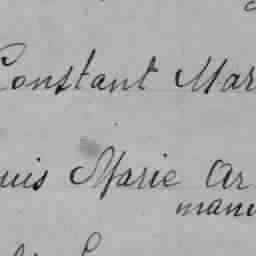 Constant Mar
uis Marie Ar
manu